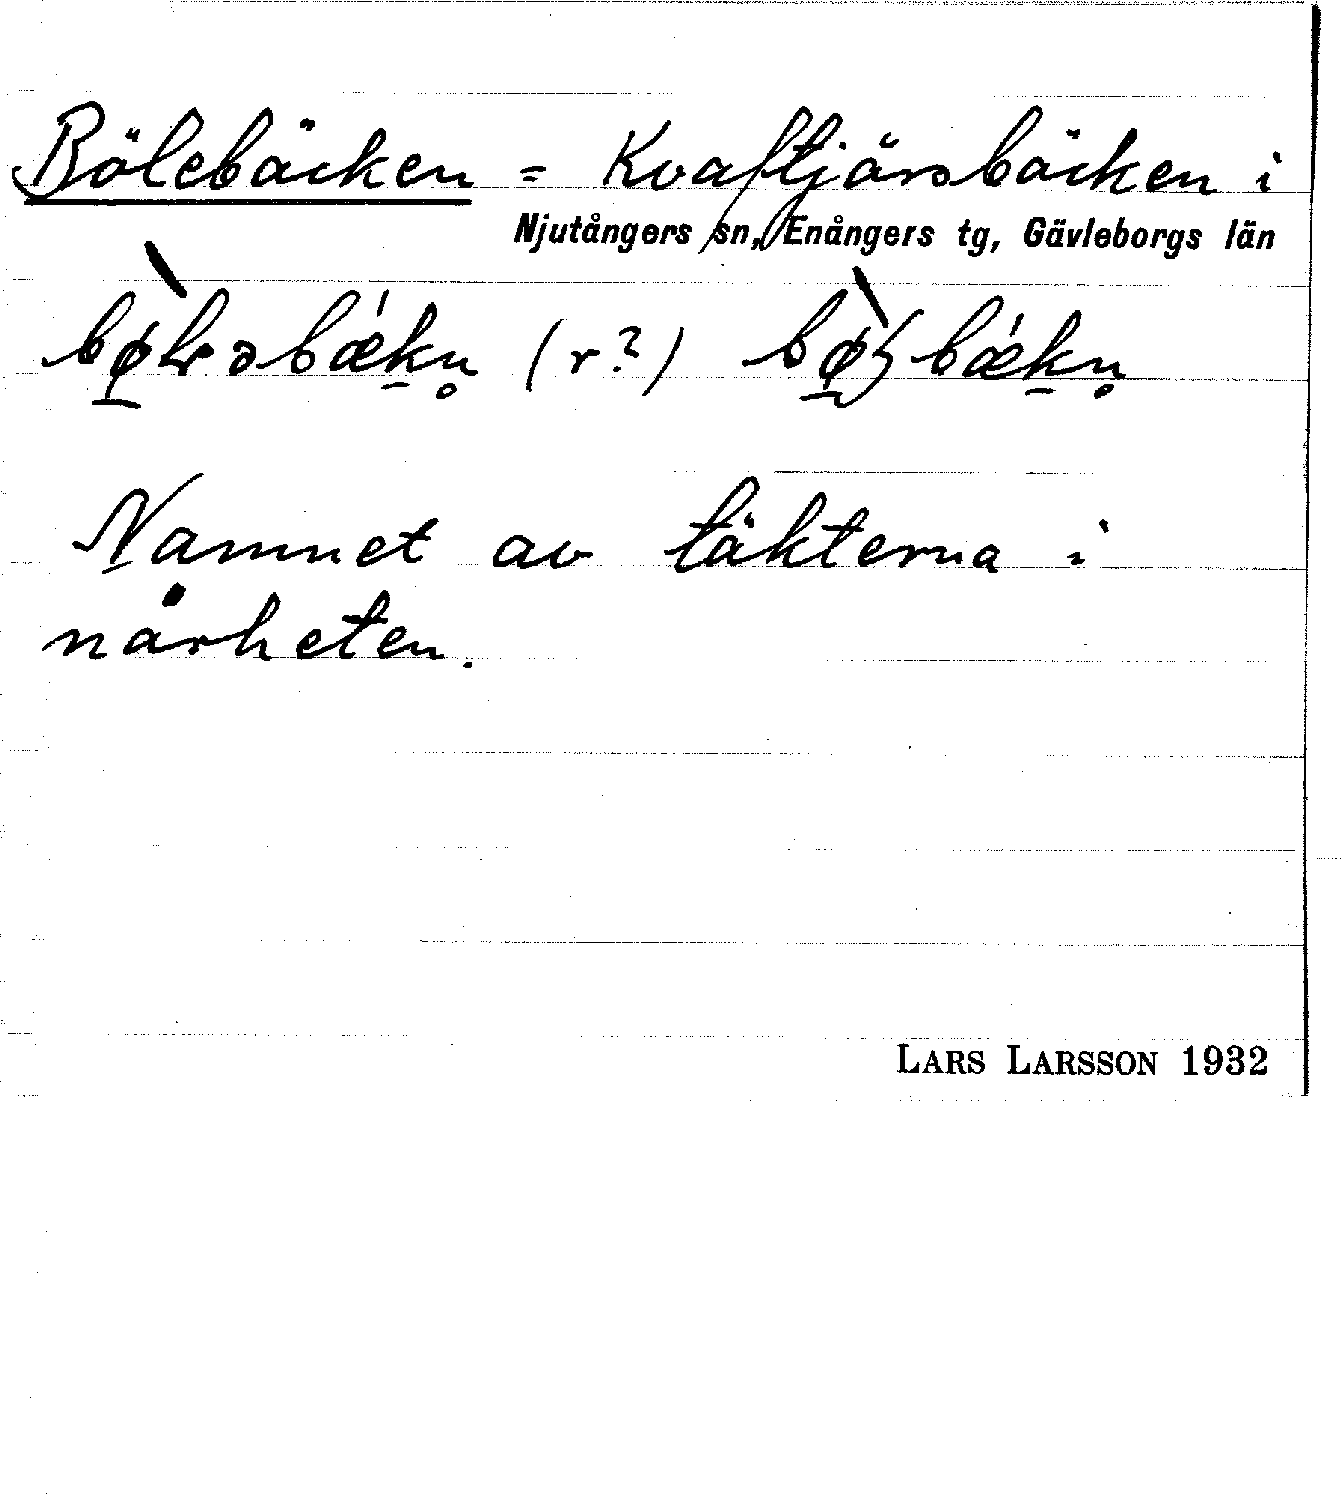 Bölebäcken = Kvaftjärsbäcken i
Njutångers sn, Enångers tg, Gävleborgs län
(r?)
Namnet av täkterna i
närheten.
LARS LARSSON 1932